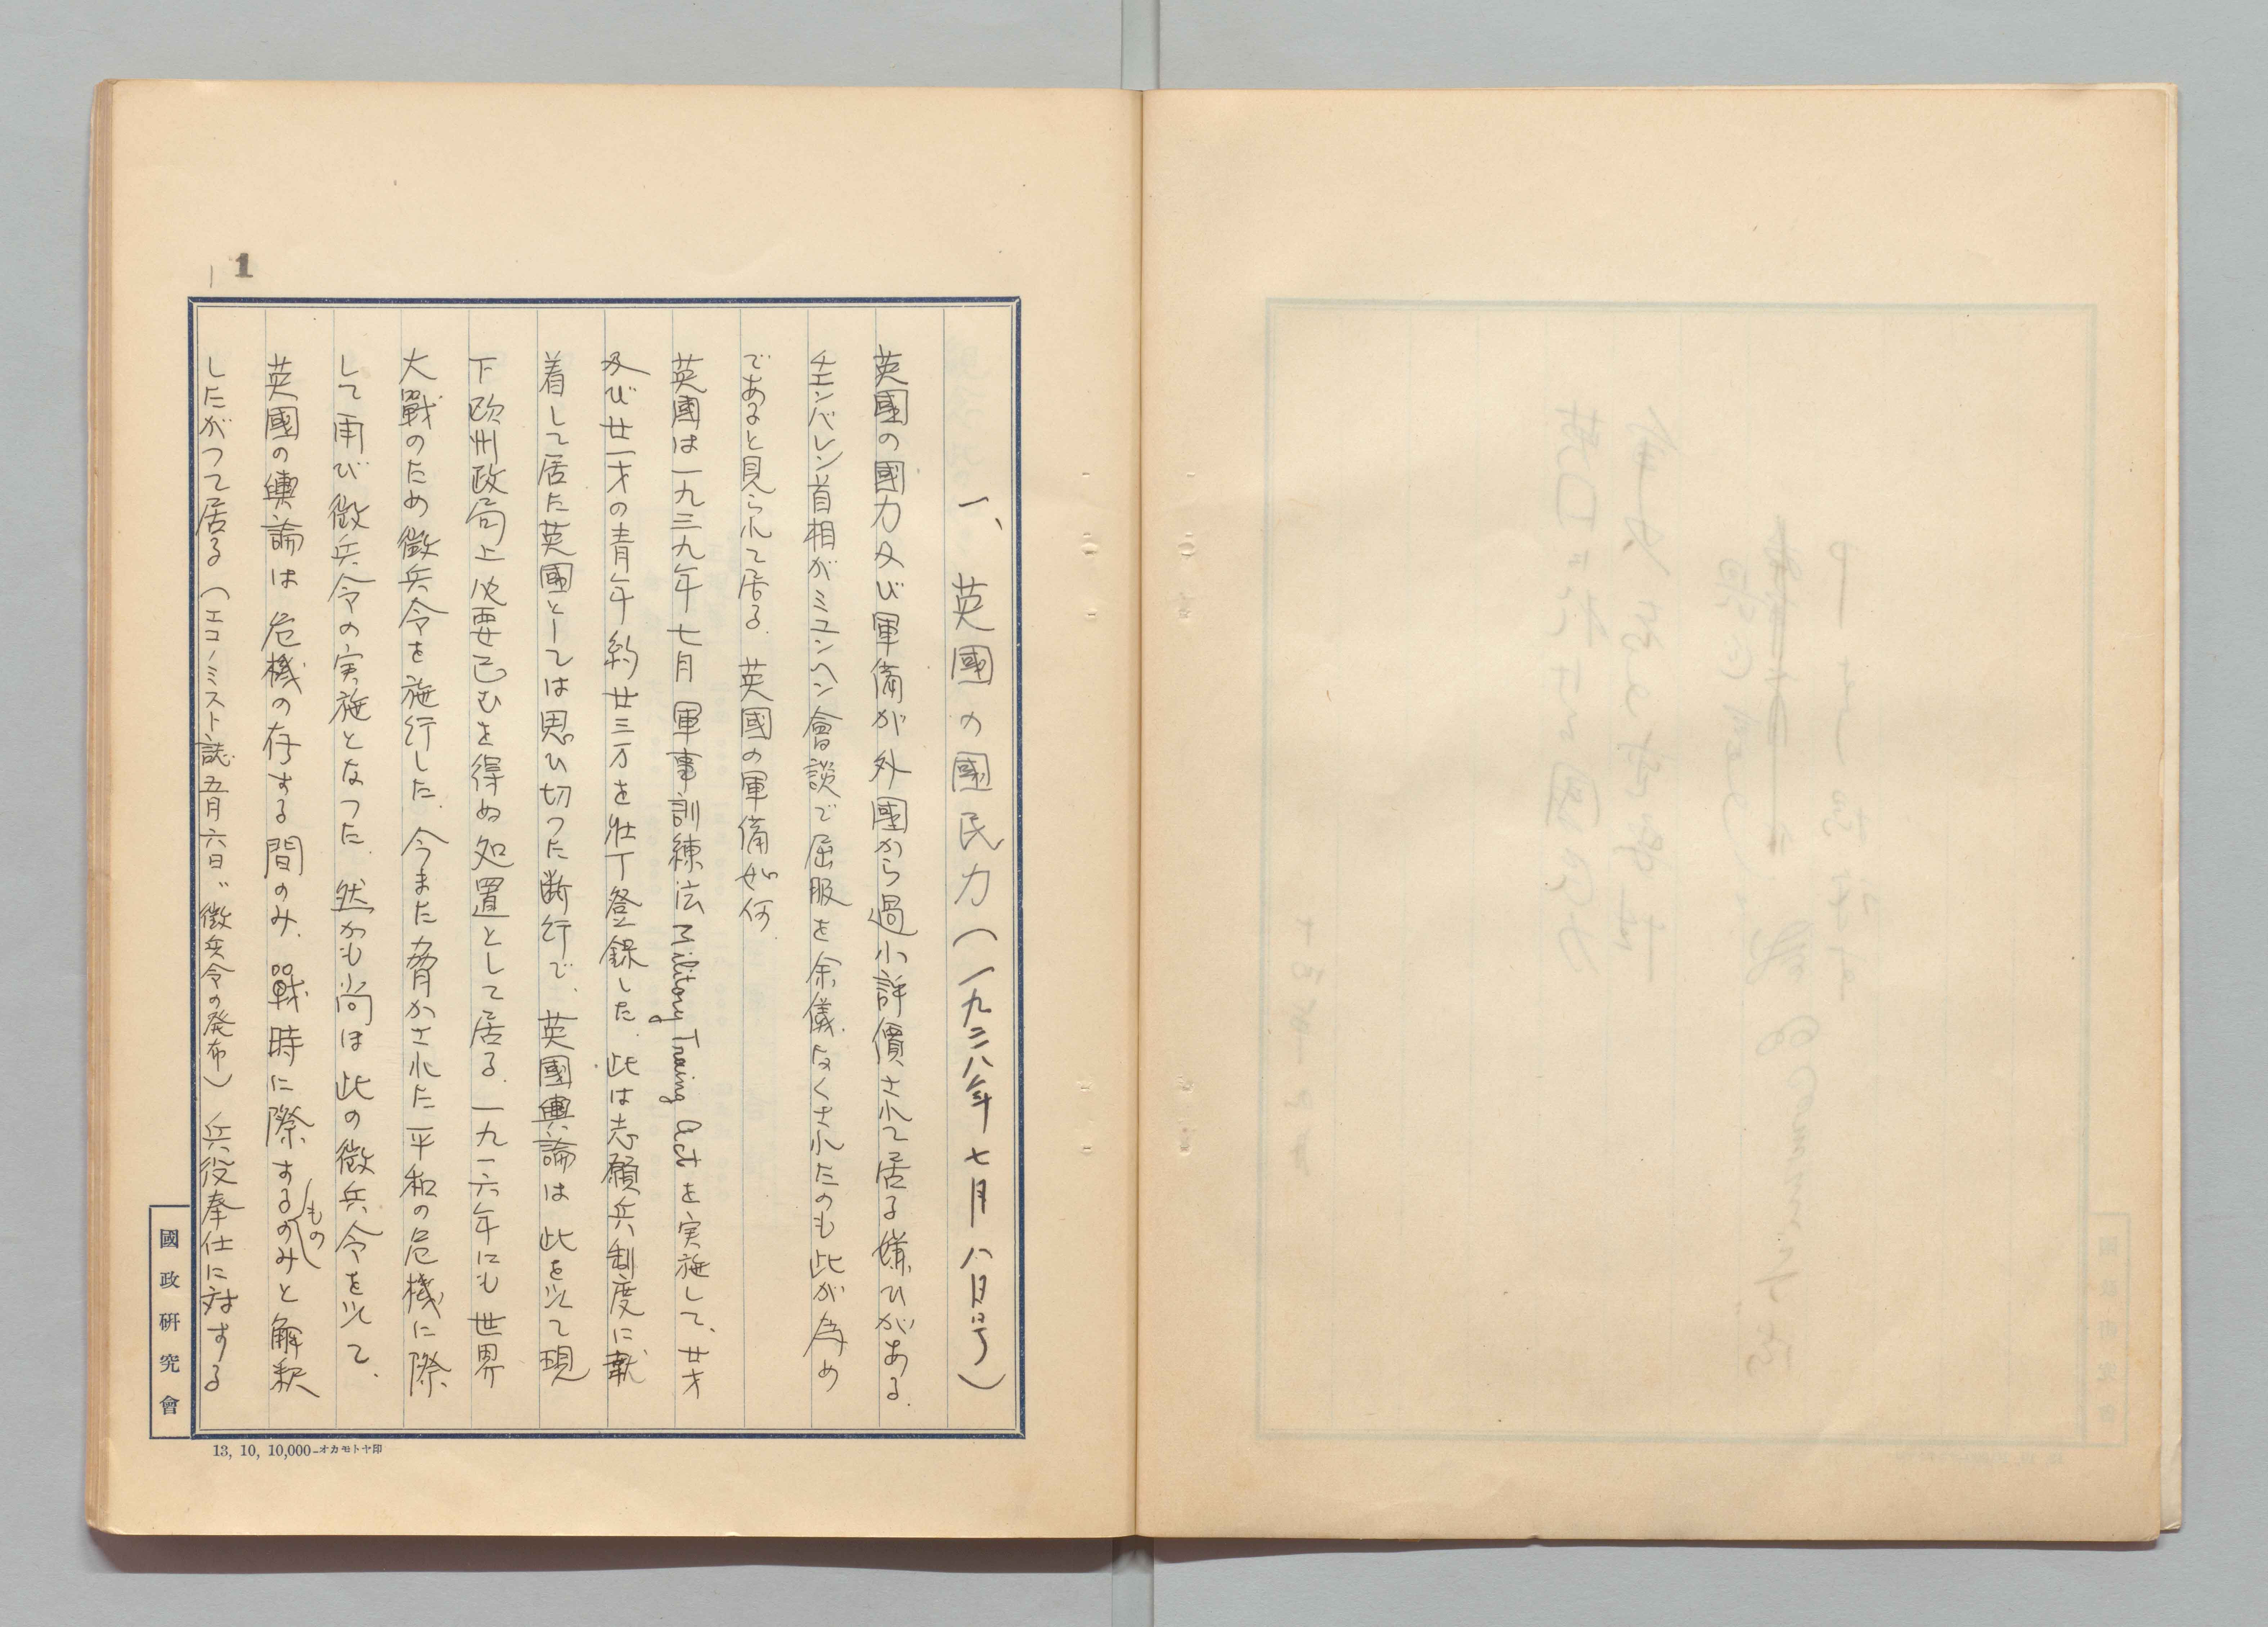 1
一、英國の國民力（一九三八年七月八日号）
英國の國力及び軍備が外國から過小評價されて居る嫌ひがある.
チエンバレン首相がミユンヘン會談で屈服を余儀なくされたのも此が為め
であると見られて居る. 英國の軍備如何
英國は一九三九年七月軍事訓練法 Military Traing Act を実施して、廿才
及び廿一才の青年約廿三万を壮丁登録した. 此は志願兵制度に執
着して居た英國としては思ひ切つた断行で. 英國輿論は此を以て現
下欧州政局上必要已むを得ぬ処置として居る. 一九一六年にも世界
大戰のため徴兵令を施行した. 今また脅かされた平和の危機に際
して再び徴兵令の実施となつた. 然かも尚ほ此の徴兵令を以て.
英國の輿論は危機の存する間のみ. 戰時に際するのみと解釈
もの
したがつて居る（エコノミスト誌五月六日〝徴兵令の発布）兵役奉仕に対する
國政研究會
13, 10, 10,000-オカモトヤ印